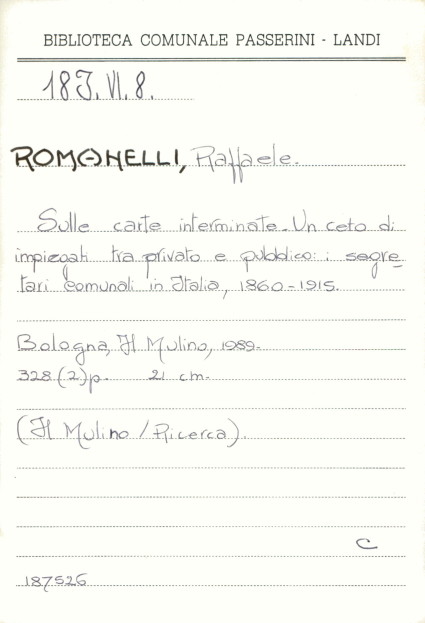 BIBLIOTECA COMUNALE PASSERINI - LANDI
18J.VI.8.
ROMANELLI, Raffaele.
Sulle carte interminate. Un ceto di
impiegati tra privato e pubblico: i segre-
tari comunali in Italia, 1860-1915.
Bologna, Il Mulino, 1989.
328 (2) p. 21 cm.
(Il Mulino / Ricerca).
C
187526